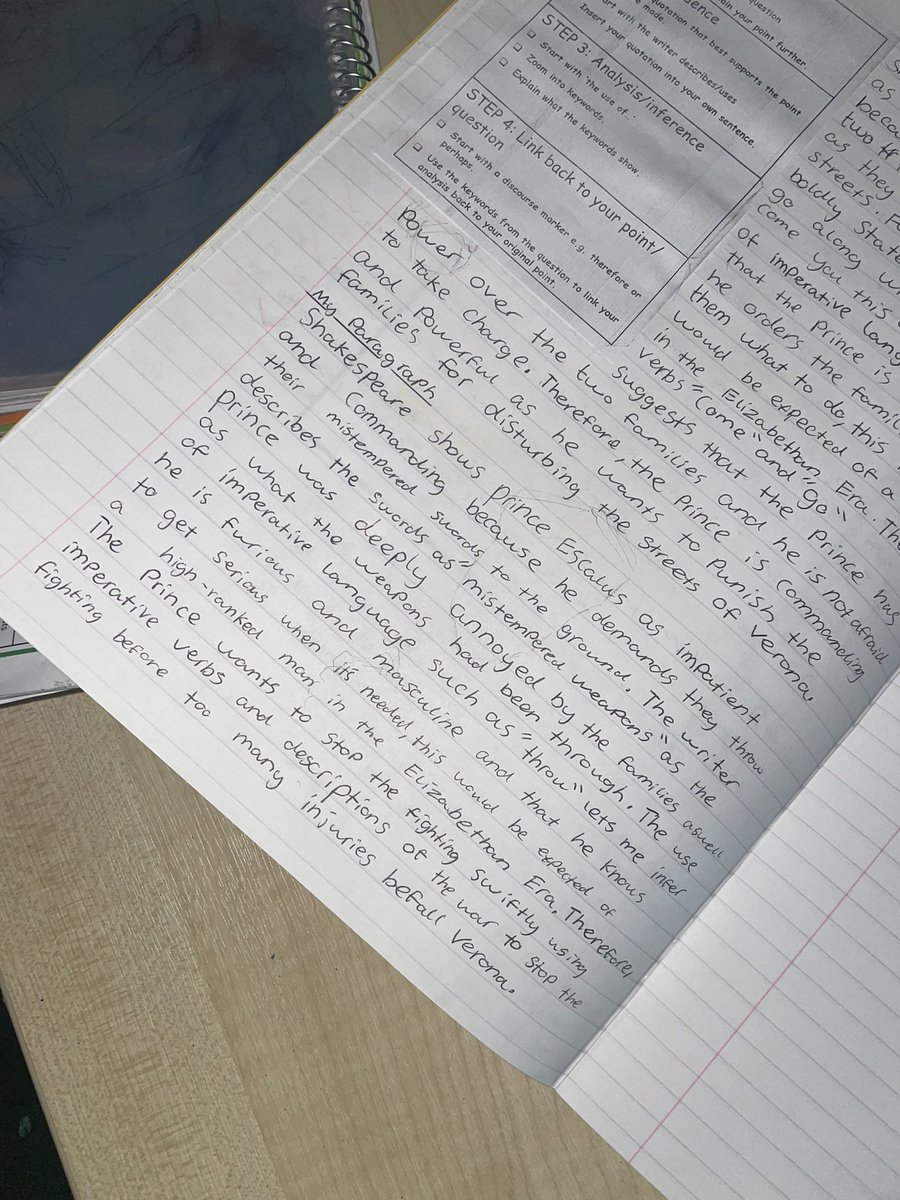 question
ain your point further.
dence
quotation that best supports the point
made.
art with the writer describes/uses
Insert your quotation into your own sentence.
STEP 3: Analysis/inference
Start with 'the use of...'
Zoom into keywords.
Explain what the keywords show.
STEP 4: Link back to your point/
question
Start with a discourse marker e.g. therefore or
perhaps.
Use the keywords from the question to link your
analysis back to your original point.
as
beca
two ff
as they
streets. F
boldly State
go along w
come you this
of imperative lang
that the prince is
he orders the famili
them what to do, this
would be expected of a
in the Elizabethan Era. The
verbs "Come" and "go"
suggests that the Prince has
Power over the two families and he is not afraid
to take charge. Therefore, the Prince is Commanding
and Powerful as he wants to Punish the
families for disturbing the streets of Verona.
My Paragraph
Shakespeare shows Prince Escalus as impatient
and Commanding because he demands they throw
their mistempered swords to the ground. The writer
describes the swords as "mistempered weapons" as the
prince was deeply annoyed by the families aswell
as what the weapons had been through. The use
of imperative language such as "throw" lets me infer
he is furious and masculine and that he knows
to get serious when its needed, this would be expected of
a high-ranked man in the Elizabethan Era. Therefore,
The Prince wants to stop the fighting swiftly using
imperative verbs and descriptions of the war to stop the
fighting before too many injuries befall Verona.